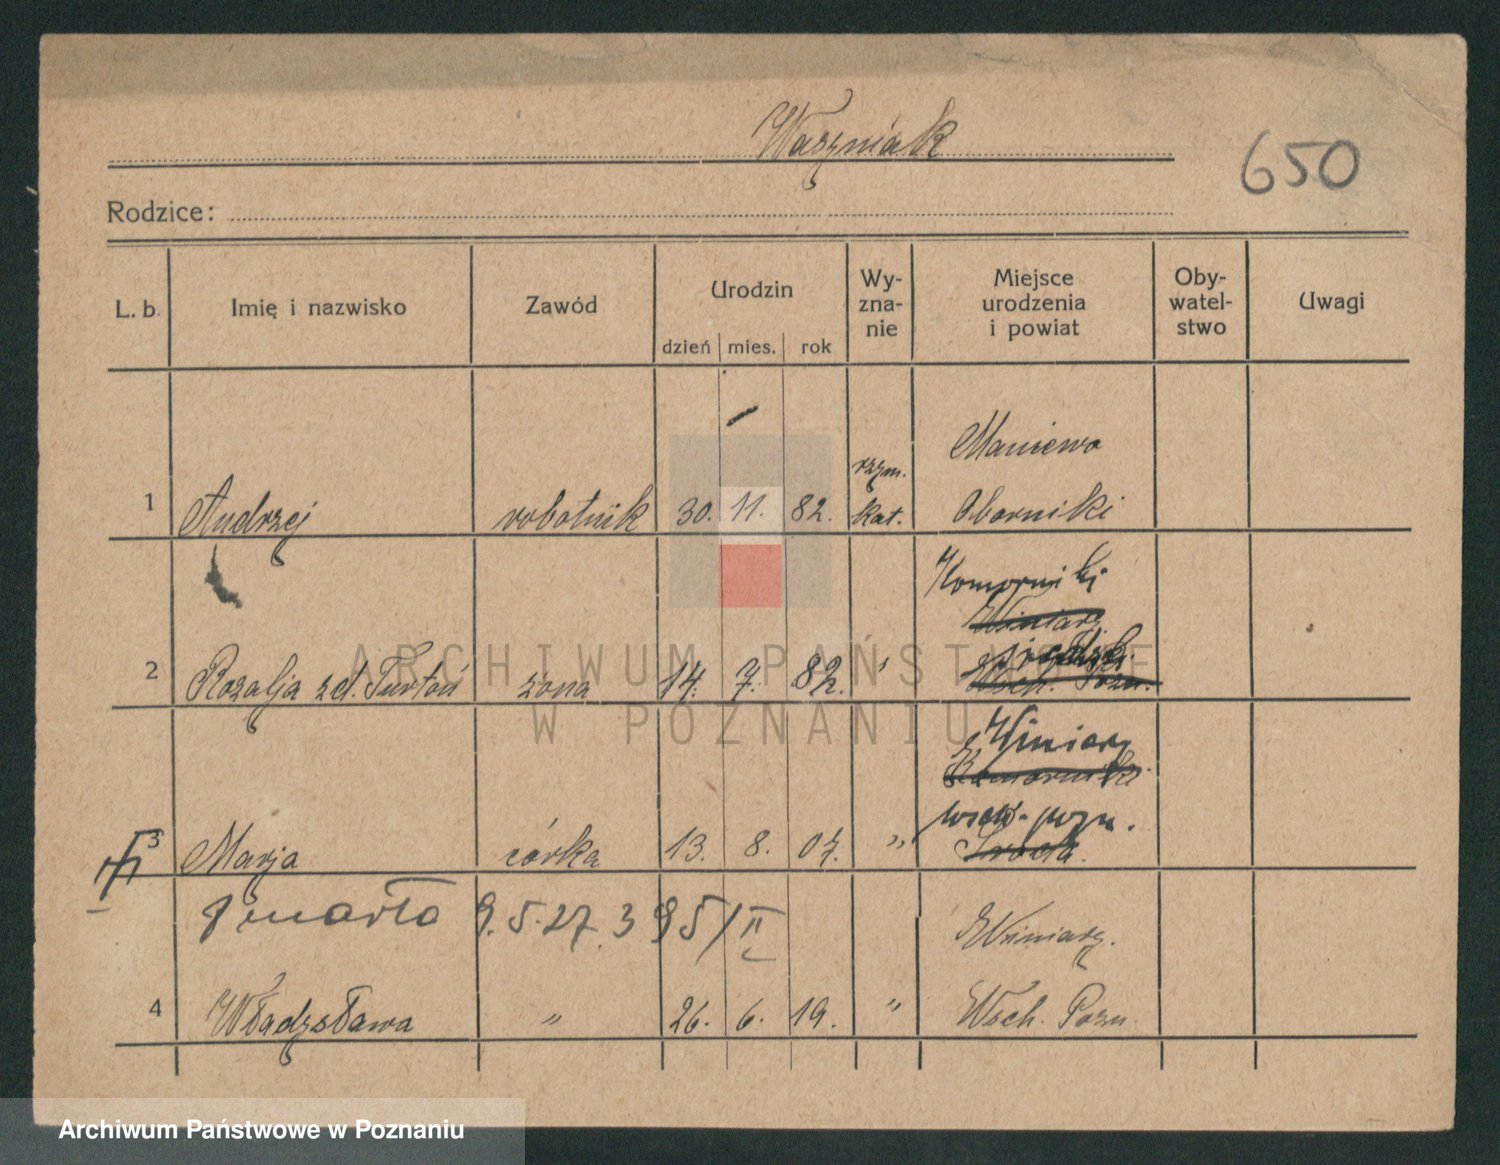 Waszniak
650
Rodzice:
L. b. Imię i nazwisko Zawód Urodzin dzień mies. rok Wy-zna-nie Miejsce urodzenia i powiat Oby-watel-stwo Uwagi
Maniewo
rzym.
1 Andrzej robotnik 30. 11. 82. kat. Oborniki
Komorniki
Winiary
2 Rozalja zd. Turtoń żona 14. 7. 82. " Wsch. Pozn.
Winiary
Komorniki
wsch. pozn.
3 Marja córka 13. 8. 07. " Środa.
Zmarła 9.5.27. 395/II
Winiary.
4 Władysława " 26. 6. 19. " Wsch. Pozn.
ARCHIWUM PAŃSTWOWE
W POZNANIU
Archiwum Państwowe w Poznaniu